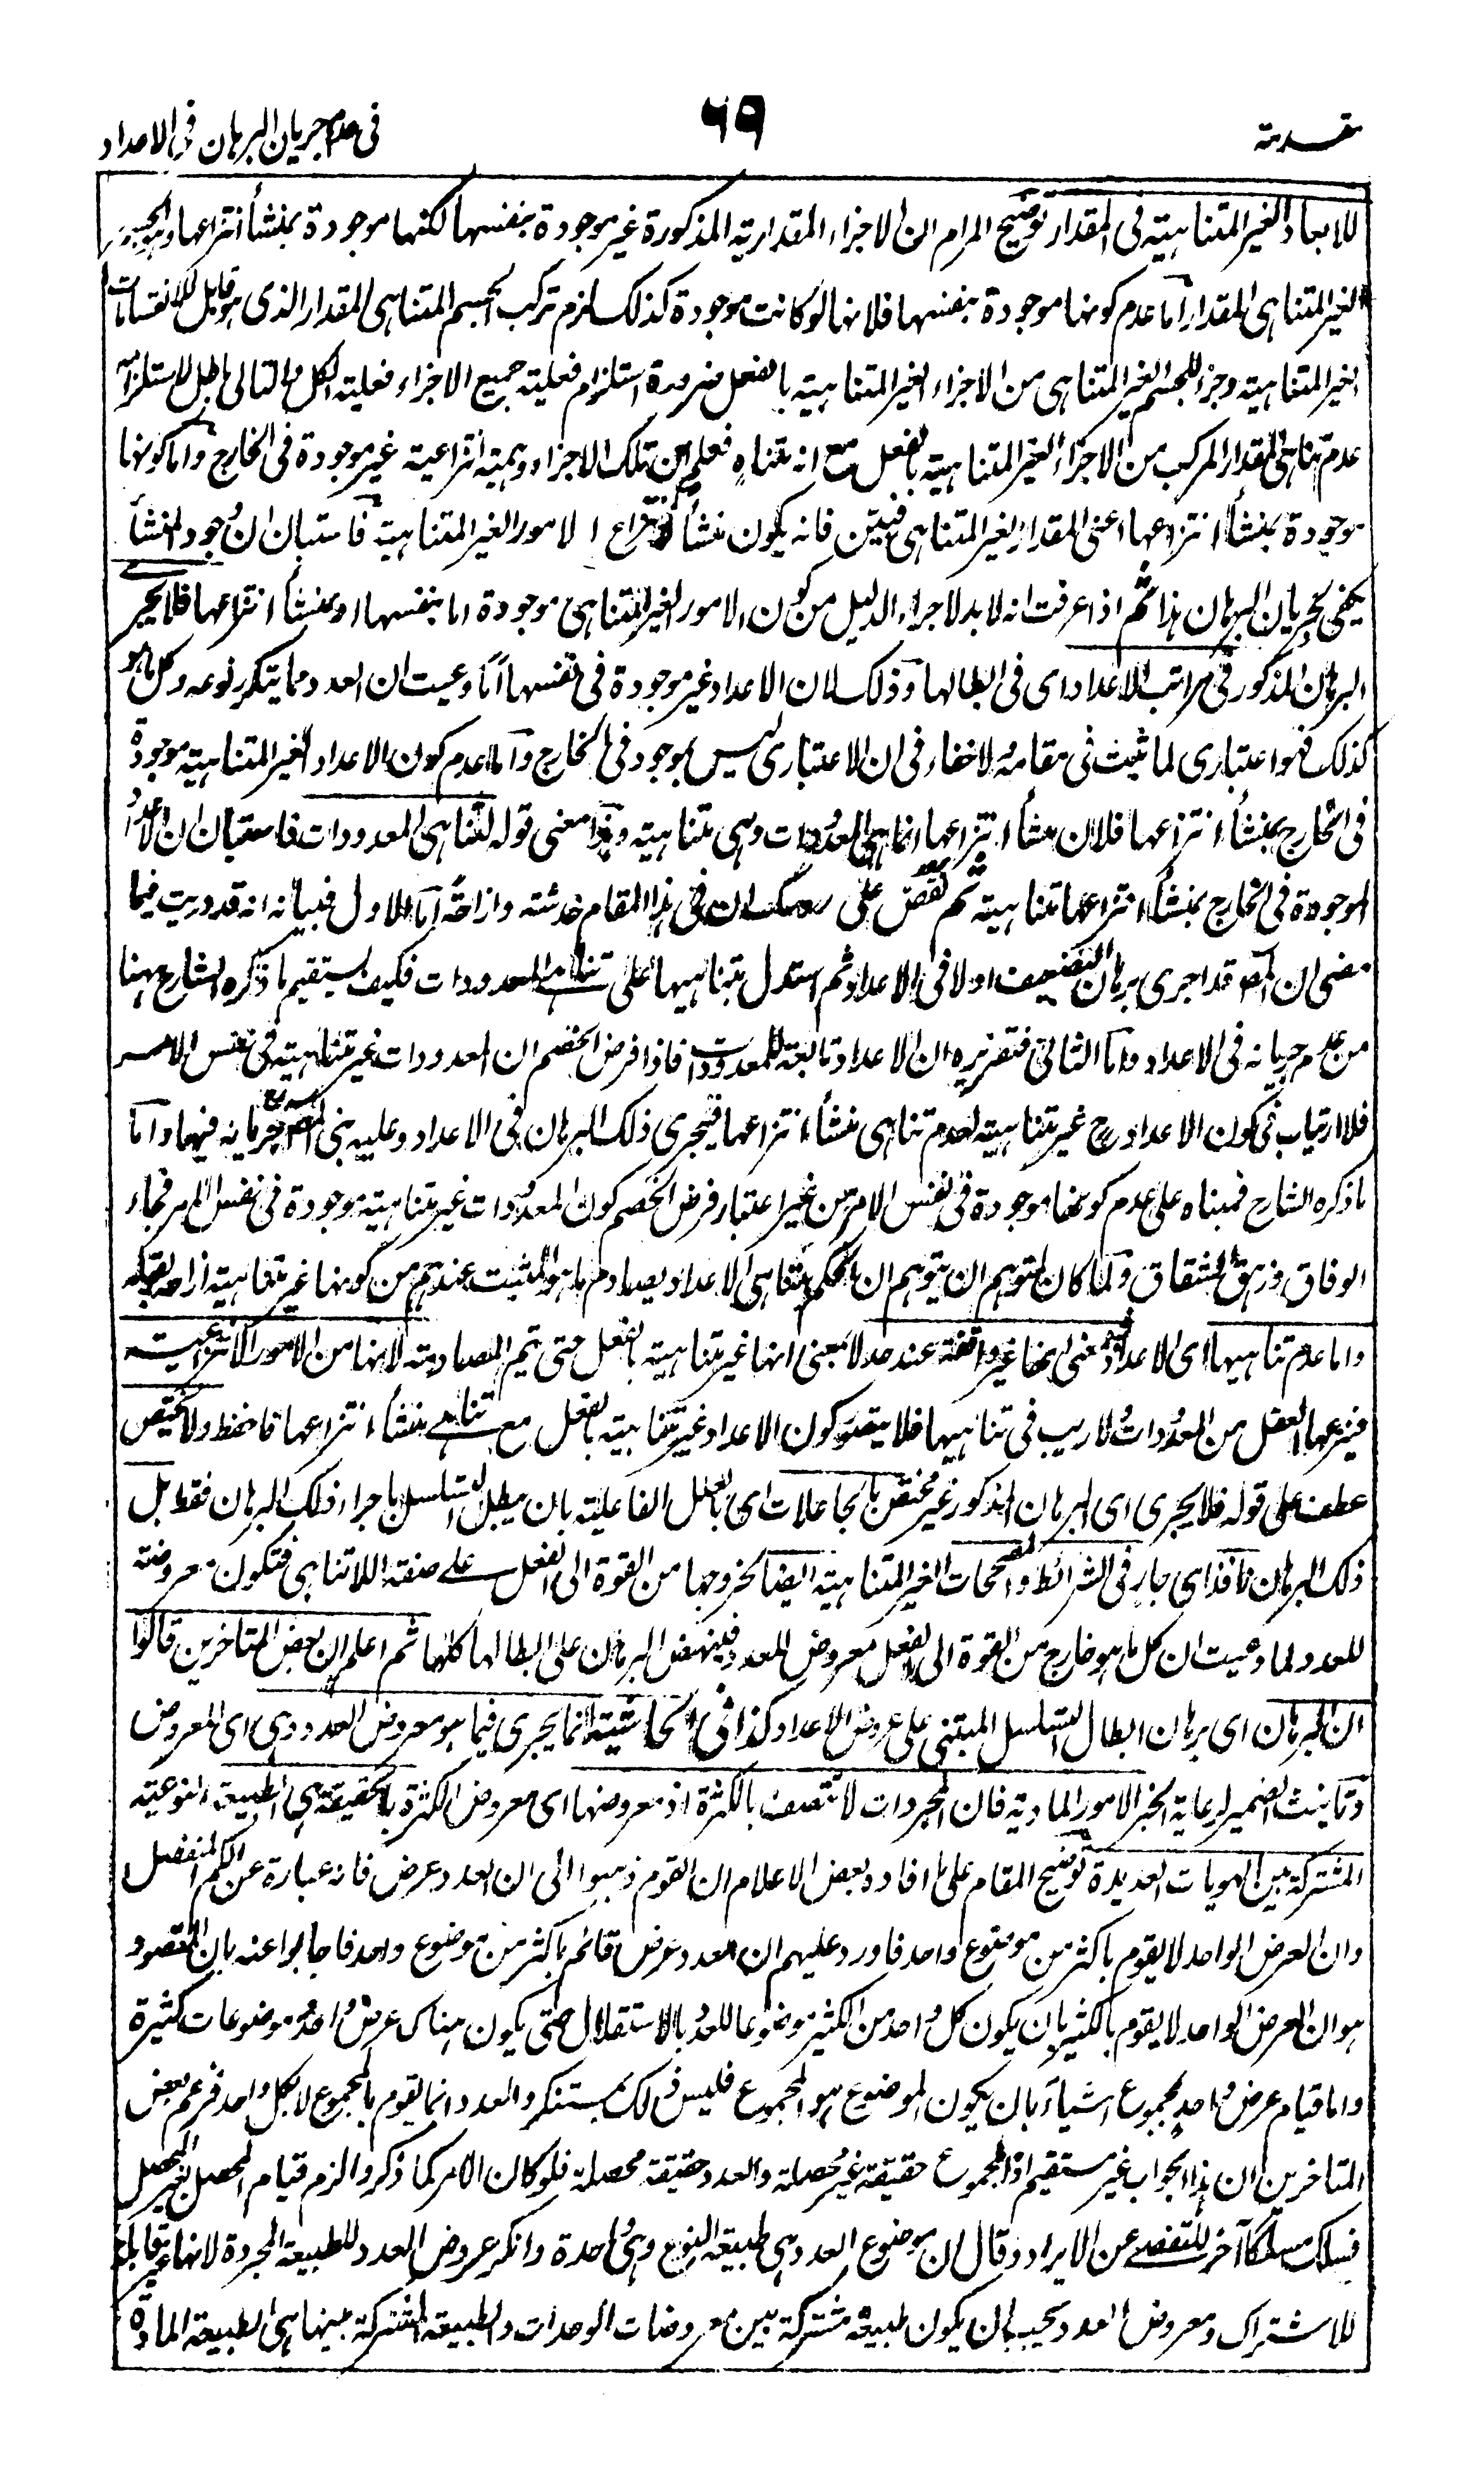 مقدمة
٦٩
فى عدم جريان البرهان فى الاعداد
للابعاد الغير المتناهية فى المقدار توضيح المرام ان الاجزاء المقدارية المذكورة غير موجودة بنفسها لكنها موجودة بمنشأ انتزاعها وهو الجسم
الغير المتناهى المقدار اما عدم كونها موجودة بنفسها فلانها لو كانت موجودة كذلك لزم تركب الجسم المتناهى المقدار الذى هو قابل للانقسامات
الغير المتناهية وجزء للجسم الغير المتناهى من الاجزاء الغير المتناهية بالفعل ضرورة استلزام فعلية جميع الاجزاء فعلية الكل والتالى باطل لاستلزامه
عدم تناهى المقدار المركب من الاجزاء الغير المتناهية بالفعل مع انه متناه فعلم ان تلك الاجزاء وهمية انتزاعية غير موجودة فى الخارج واما كونها
موجودة بمنشأ انتزاعها اعنى المقدار الغير المتناهى فبين فانه يكون منشأ لانتزاع الامور الغير المتناهية فاستبان ان وجود المنشأ
يكفى لجريان البرهان هذا ثم اذا عرفت انه لا بد لاجراء الدليل من كون الامور الغير المتناهى موجودة اما بنفسها او بمنشأ انتزاعها فلا يجرى
البرهان المذكور فى مراتب الاعداد اى فى ابطالها وذلك لان الاعداد غير موجودة فى نفسها اما وعيت ان العدد مما يتكرر نوعه وكل ما هو
كذلك فهو اعتبارى لما ثبت فى مقامه لا خفاء فى ان الاعتبارى ليس بموجود فى الخارج واما عدم كون الاعداد الغير المتناهية موجودة
فى الخارج بمنشأ انتزاعها فلان منشأ انتزاعها انما هى المعدودات وهى متناهية وهذا معنى قوله لتناهى المعدودات فاستبان ان الاعداد
الموجودة فى الخارج بمنشأ انتزاعها متناهية ثم نقص على ان فى هذا المقام خدشته وازاحة اما الاول فبيانه انه قد دريت فيما
مضى ان المصـ قد اجرى برهان التضعيف اولا فى الاعداد ثم استدل بتناهيها على تناهى المعدودات فكيف يستقيم ما ذكره الشارح ههنا
من عدم جريانه فى الاعداد واما الثانى فتقريره ان الاعداد تابعة للمعدودات فاذا فرض الخصم ان المعدودات غير متناهية فى نفس الامر
فلا ارتياب فى كون الاعداد ح غير متناهية لعدم تناهى منشأ انتزاعها فيجرى ذلك البرهان فى الاعداد وعليه بنى المصـ جريانه فيها واما
ما ذكره الشارح فمبناه على عدم كونها موجودة فى نفس الامر من غير اعتبار فرض الخصم كون المعدودات غير متناهية موجودة فى نفس الامر فجاء
الوفاق وزهق الشقاق ولما كان لمتوهم ان يتوهم ان الحكم بتناهى الاعداد يصادم ما هو المثبت عندهم من كونها غير متناهية ازاحه بقوله
واما عدم تناهيها اى الاعداد فمعنى انها غير واقفة عند حد لا بمعنى انها غير متناهية بالفعل حتى يتم المصادمة لانها من الامور الانتزاعية
فينتزعها العقل من المعدودات لا ريب فى تناهيها فلا يتصور كون الاعداد غير متناهية بالفعل مع تناهى منشأ انتزاعها فاحفظ ولا يختص
عطف على قوله فلا يجرى اى البرهان المذكور غير مختص بالجاعلات اى بالعلل الفاعلية بان يبطل التسلسل باجراء ذلك البرهان فقط بل
ذلك البرهان نافذ اى جار فى الشرائط والمصححات الغير المتناهية ايضا لخروجها من القوة الى الفعل على صفة اللاتناهى فتكون معروضة
للعدد لما وعيت ان كل ما هو خارج من القوة الى الفعل معروض العدد فينهض البرهان على ابطالها كلها ثم اعلم ان بعض المتاخرين قالوا
ان البرهان اى برهان ابطال التسلسل المبتنى على عروض الاعداد كذا فى الحاشية انما يجرى فيما هو معروض العدد وهى اى المعروض
وتانيث الضمير لرعاية الخبر الامور المادية فان المجردات لا تتصف بالكثرة اذ معروضها اى معروض الكثرة بالحقيقة هى الطبيعة النوعية
المشتركة بين الهويات العديدة توضيح المقام على ما افاده بعض الاعلام ان القوم ذهبوا الى ان العدد عرض فانه عبارة عن الكم المنفصل
وان العرض الواحد لا يقوم باكثر من موضوع واحد فاورد عليهم ان العدد عرض قائم باكثر من موضوع واحد فاجابوا عنه بان المقصود
هو ان العرض الواحد لا يقوم بالكثير بان يكون كل واحد من الكثير موضوعا للعدد بالاستقلال حتى يكون هناك عرض واحد وموضوعات كثيرة
واما قيام عرض واحد بمجموع اشياء بان يكون الموضوع هو المجموع فليس ذلك بمستنكر والعدد انما يقوم بالمجموع لا بكل واحد فزعم بعض
المتاخرين ان هذا الجواب غير مستقيم اذ المجموع حقيقة غير محصلة والعدد حقيقة محصلة فلو كان الامر كما ذكروا لزم قيام المحصل بغير المحصل
فسلك مسلكا آخر للتفصى عن الايراد وقال ان موضوع العدد هى طبيعة النوع وهى واحدة وانكر عروض العدد للطبيعة المجردة لانها غير قابلة
للاشتراك ومعروض العدد يجب ان يكون طبيعة مشتركة بين معروضات الوحدات والطبيعة المشتركة بينها هى الطبيعة المادة